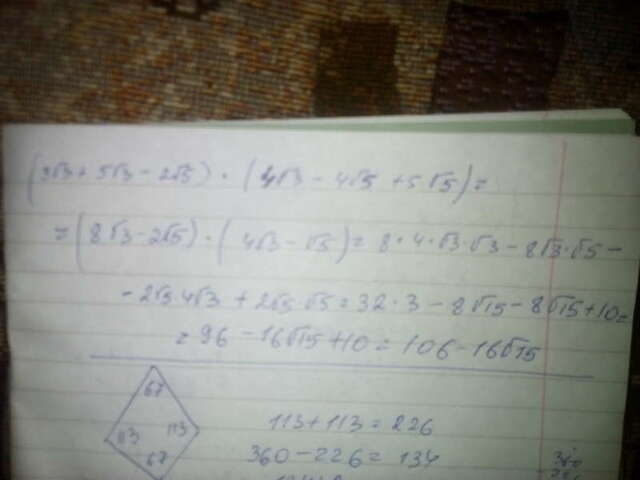 (3√3 + 5√3 - 2√5) · (4√3 - 4√5 + 5√5) =
= (8√3 - 2√5) · (4√3 - √5) = 8 · 4 · √3 · √3 - 8√3 · √5 -
- 2√5 · 4√3 + 2√5 · √5 = 32 · 3 - 8√15 - 8√15 + 10 =
= 96 - 16√15 + 10 = 106 - 16√15
67
113 113
67
113 + 113 = 226
360 - 226 = 134
360